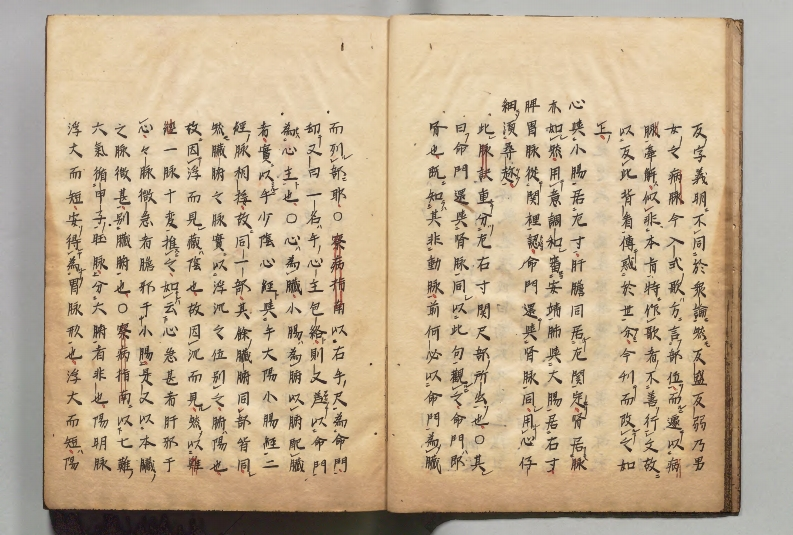 反字義明不同於衆論然反盛反弱乃男
女之病脉今入式歌方言部位而還以病
脉牽解似非本旨特作歌者不善行文故
以反此背看傳惑於世余今刊而改之如
左
心與小腸居左寸肝膽同居左関定腎居脉
本如然用意調和審安靖肺與大腸居右寸
脾胃脉從関裡認命門還與腎脉同用心仔
細須尋趂
此脉訣重分左右寸関尺部所出也〇其
曰命門還與腎脉同以此句觀之命門即
腎也既知其非動脉前何必以命門為臓
而列部耶〇察病指南以右手尺為命門
却又曰一名手心主包絡則又以命門
為心主也〇心為臓小腸為腑以腑配臓
者實以手少陰心経與手太陽小腸経二
経脉相接故同一部其餘臓腑同部皆同
然臓腑之脉實以浮沉之位別之腑陽也
故因浮而見臓陰也故因沉而見然以難
経一脉十変推之如云心急甚者肝邪于
心心脉微急者膽邪于小腸是又以本臓
之脉微甚別臓腑也〇察病指南以七難
六氣循甲子旺脉分六腑者非也陽明脉
浮大而短安得為胃脉形也浮大而短陽